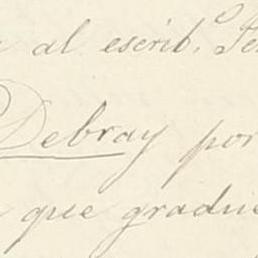 al escrib.º
Debray por
que gradu